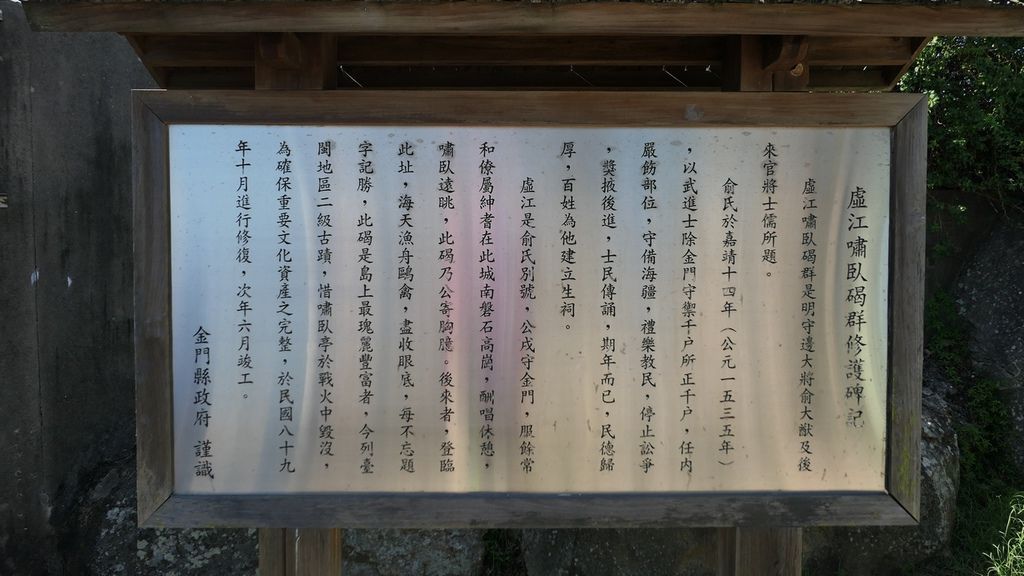 虛江嘯臥碣群修護碑記
虛江嘯臥碣群是明守邊大將俞大猷及後
來官將士儒所題。
俞氏於嘉請十四年（公元一五三五年）
，以武進士除金門守禦千户所正千户，任內
嚴飭部位，守備海疆，禮樂教民，停止訟爭
，獎掖後進，士民傳誦，期年而已，民德歸
厚，百姓為他建立生祠。
虛江是俞氏別號，公戍守金門，服餘常
和僚屬紳耆在此城南磐石高崗，酬唱休憩，
嘯臥遠眺，此碣乃公寄胸臆。後來者，登臨
此址，海天漁舟鷗禽，盡收眼底，每不忘題
字記勝，此碣是島上最瑰麗豐富者，今列臺
閩地區二級古蹟，惜嘯臥亭於戰火中毀沒，
為確保重要文化資產之完整，於民國八十九
年十月進行修復，次年六月竣工。
金門縣政府 謹識